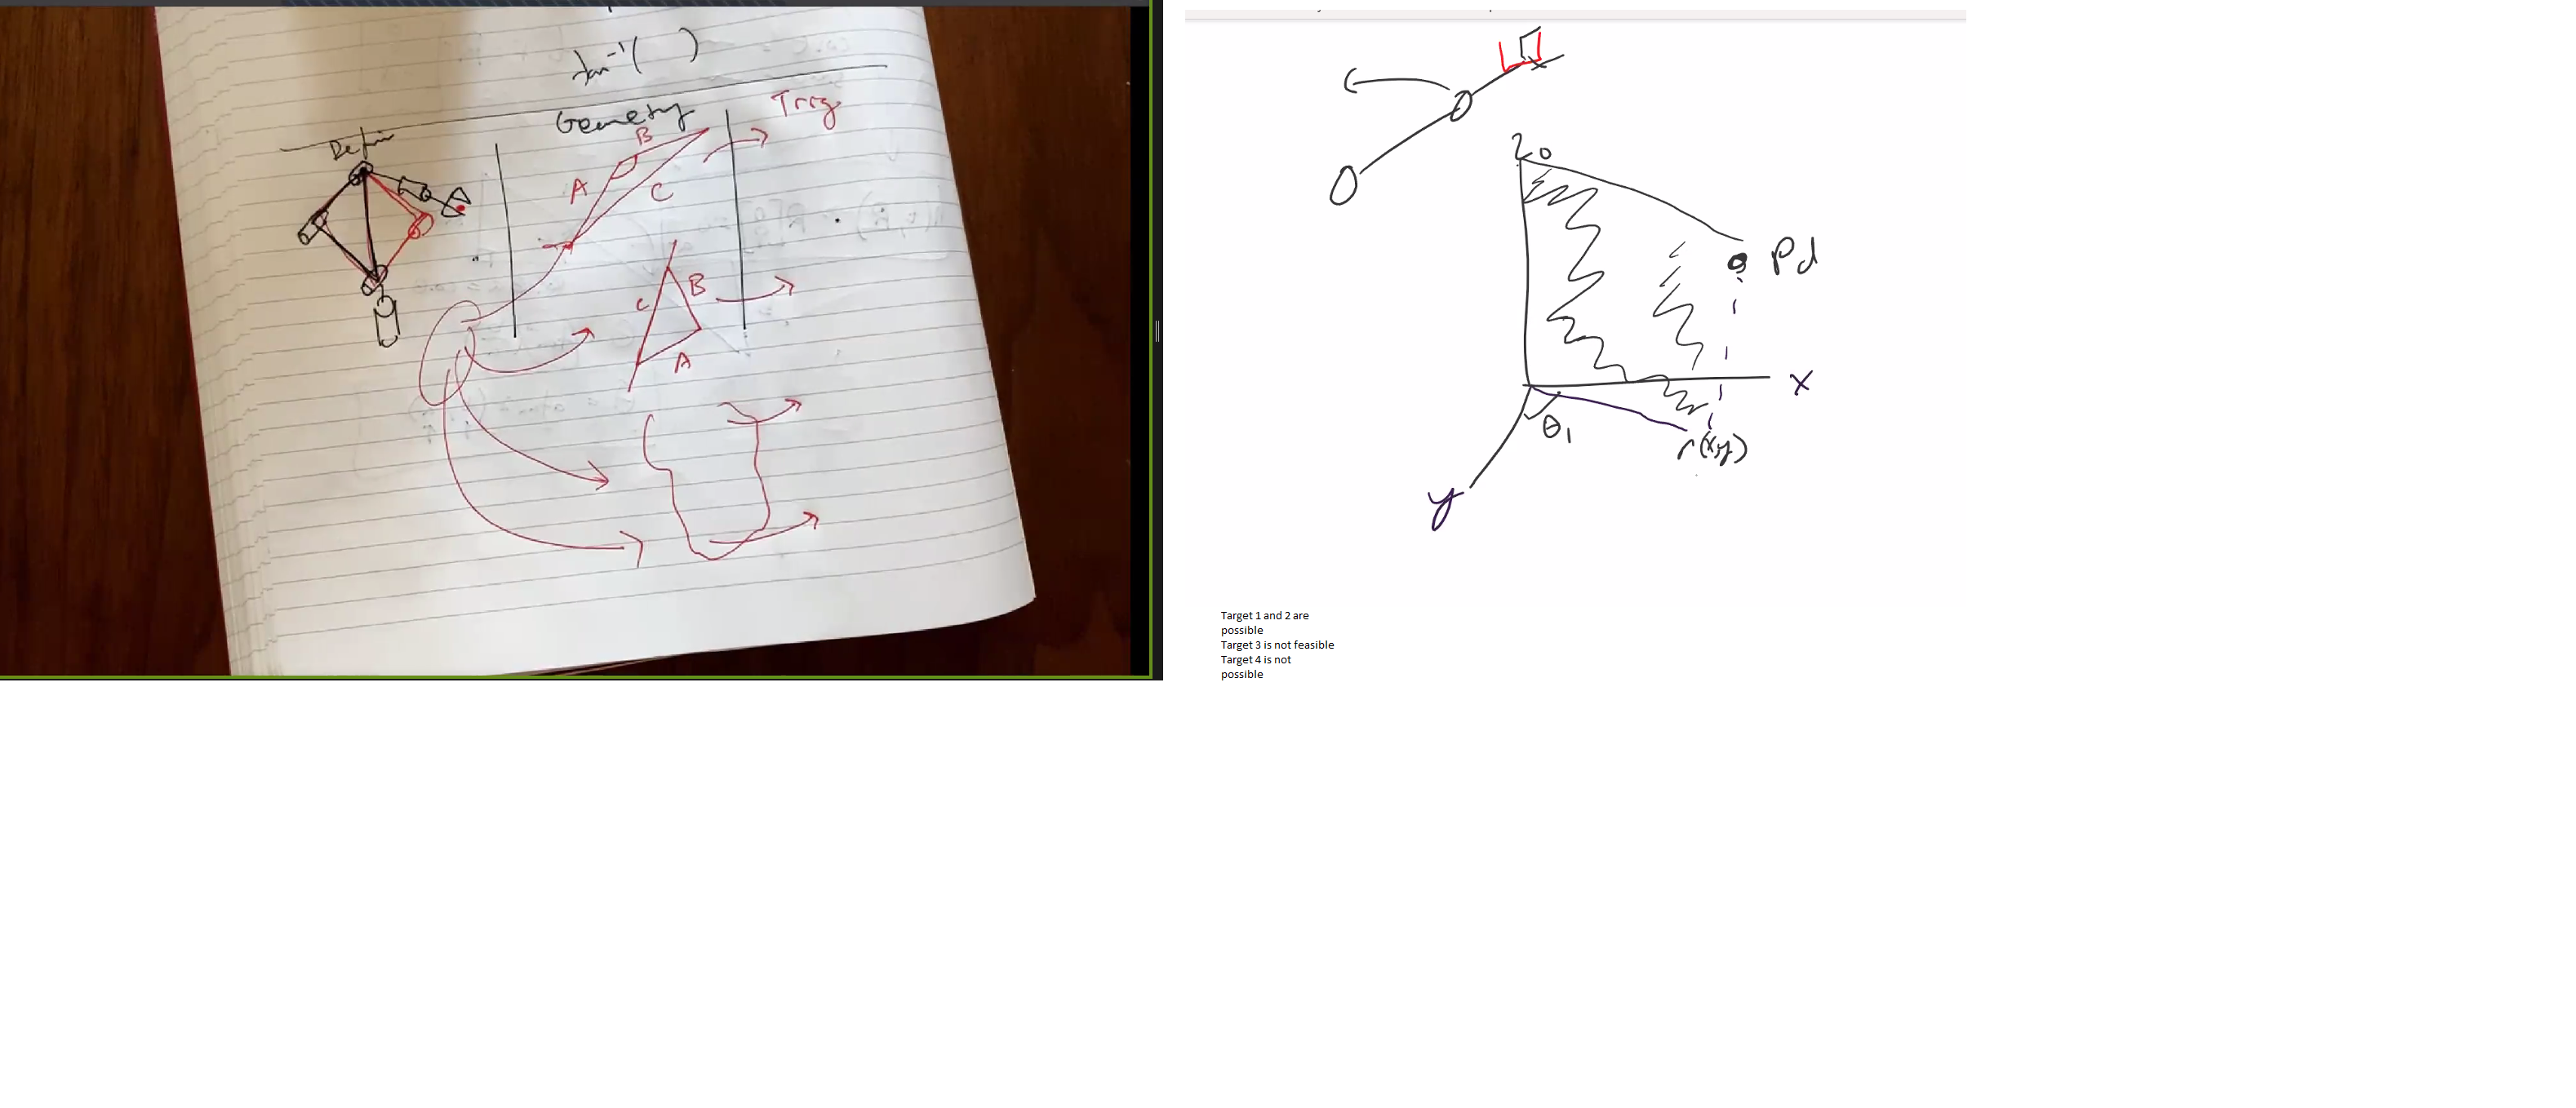 tan⁻¹( )
Geometry
Trig
Defin
B
A
C
C
B
A
z0
Pd
x
θ1
r(xy)
y
Target 1 and 2 are
possible
Target 3 is not feasible
Target 4 is not
possible